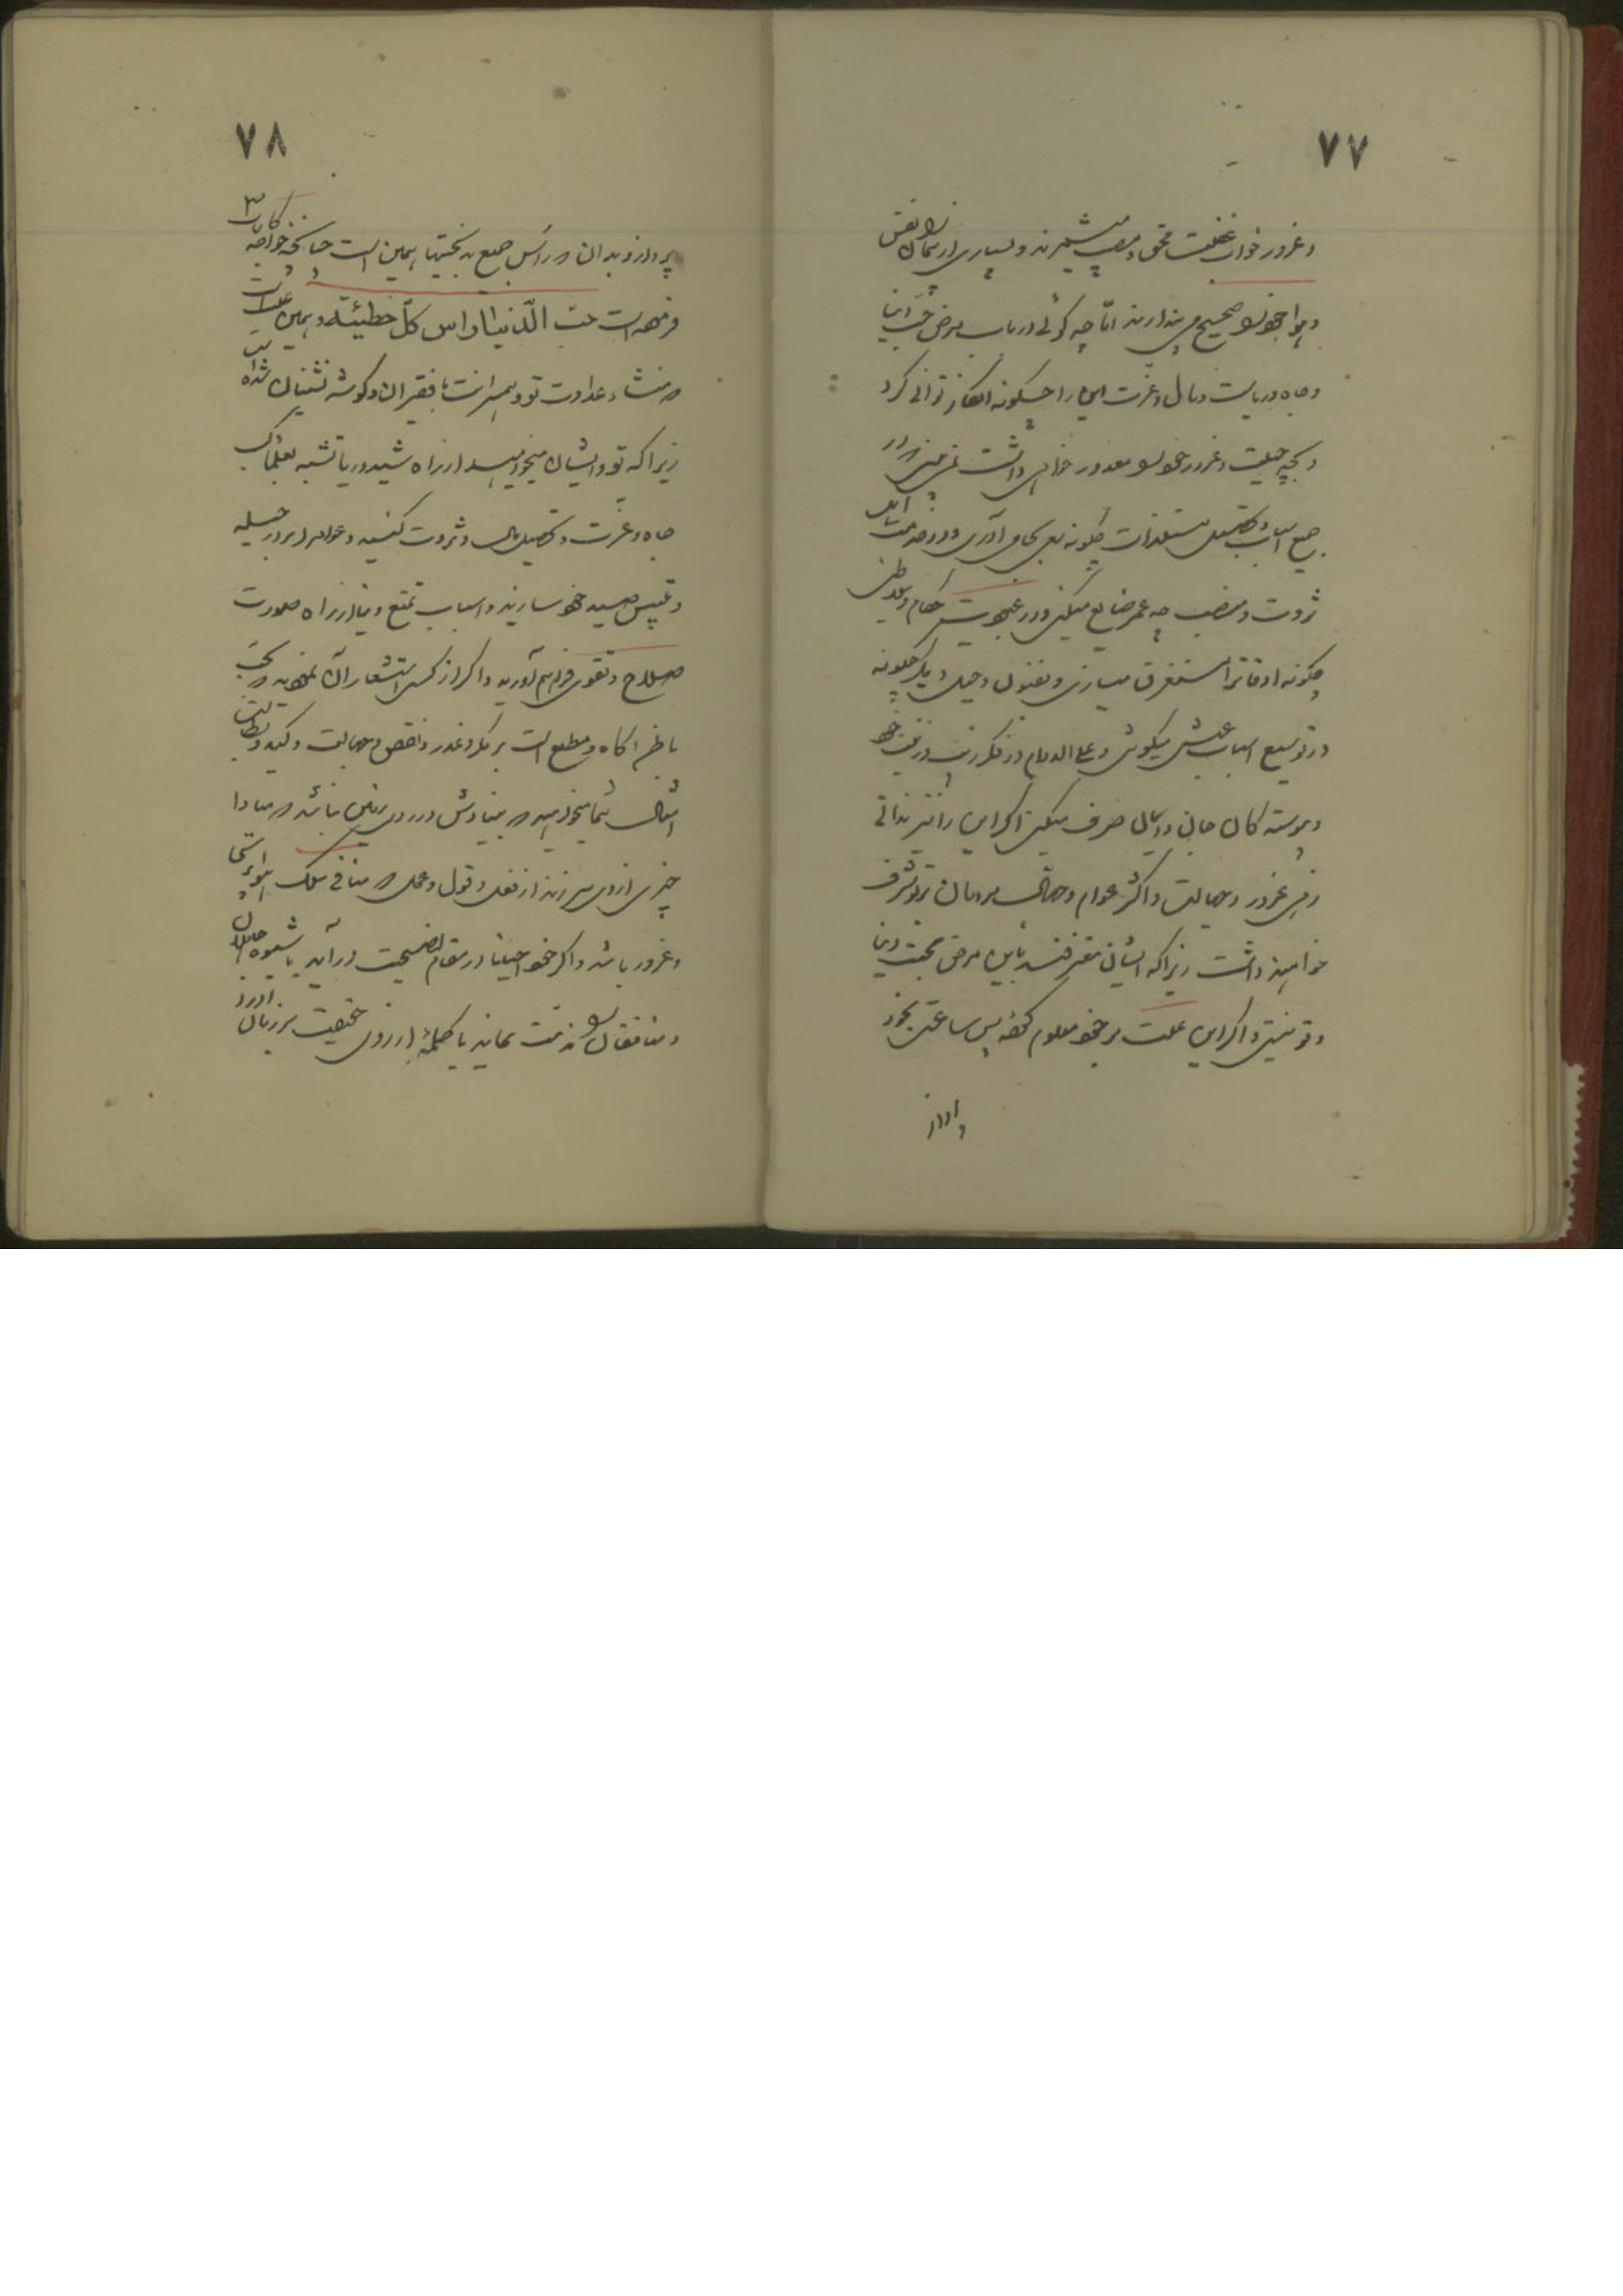 ۷۷
و غرور خواب غفلت محقق و مصیب میشمرند و بسیاری از بیماران نفس
و هوا خود را صحیح می پندارند اما چه گوئی در باب مرض حب دنیا
و جاه و ریاست و مال و عزت این را چگونه انکار توانی کرد
و بچه حیلت و غرور خود را معذور خواهی داشت نمی بینی که در
جمع اسباب و تحصیل مستلذات چگونه سعی بجا می آوری و در خدمت اهل
ثروت و منصب چه عمر ضایع میکنی و در عبودیت حکام و سلاطین
چگونه اوقات را مستغرق میسازی و بفنون و حیل و
در توسیع اسباب عیش میکوشی و علی الدوام در فکر زینت
و پیوسته کمال جان در مال صرف میکنی اگر این را نیز ندانی
زهی غرور و جهالت و اکثر عوام و جهال مردمان بر تو شرف
خواهند داشت زیرا که ایشان معترفند باین مرض محبت دنیا
و تو نیستی و اگر این علت بر خود معلوم کرده پس ساعتی بخود
پرداز
۷۸
پرداز و بدان که رأس جمیع بدبختیها همین است چنانکه خواجه کاینات
فرموده است حب الدنیا رأس کل خطیئة و همین علت است
که منشاء عداوت تو و همسرانت با فقیران و گوشه نشینان شده
زیرا که تو و ایشان میخواهید از راه شید و ریا تشبه بعلما کسب
جاه و عزت و تحصیل مال و ثروت کنید و عوام را بزور حیله
و تلبیس صید خود سازید و اسباب تمتع دنیا از راه صورت
صلاح و تقوی فراهم آورید و اگر از کسی استشعار آن نموده
باطن آگاه و مطلع است بر مکر و غدر و نقص و جهالت و کید و
امثال شما میخواهید که بنیادش در روی زمین نباشد که مبادا
چیزی از وی سر زند از فعل و قول و عمل که منافی مسلک
و غرور باشد و اگر خود احیانا در مقام نصیحت درآید یا شیوه جاهلان
و منافقان را مذمت نماید یا کلمه از روی حقیقت بر زبان آورد